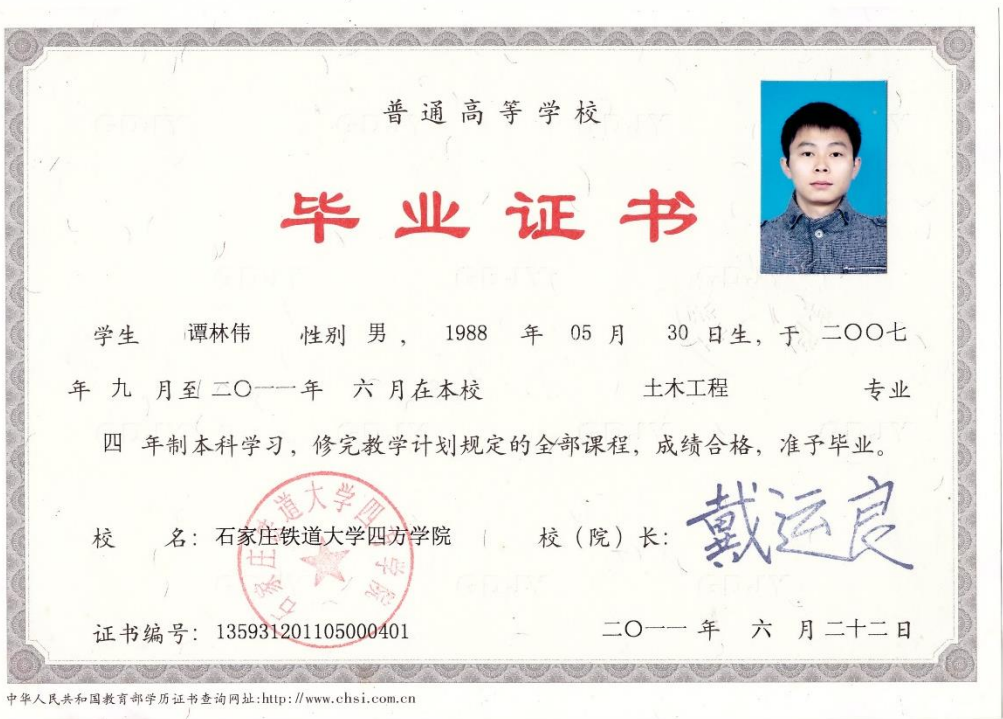 普通高等学校
毕业证书
学生 谭林伟 性别 男 ， 1988 年 05 月 30 日生，于 二〇〇七
年 九 月至 二〇一一 年 六 月在本校 土木工程 专业
四 年制本科学习，修完教学计划规定的全部课程，成绩合格，准予毕业。
校 名：石家庄铁道大学四方学院 校（院）长：戴运良
石家庄铁道大学四方学院
证书编号：135931201105000401 二〇一一 年 六 月二十二日
中华人民共和国教育部学历证书查询网址:http://www.chsi.com.cn